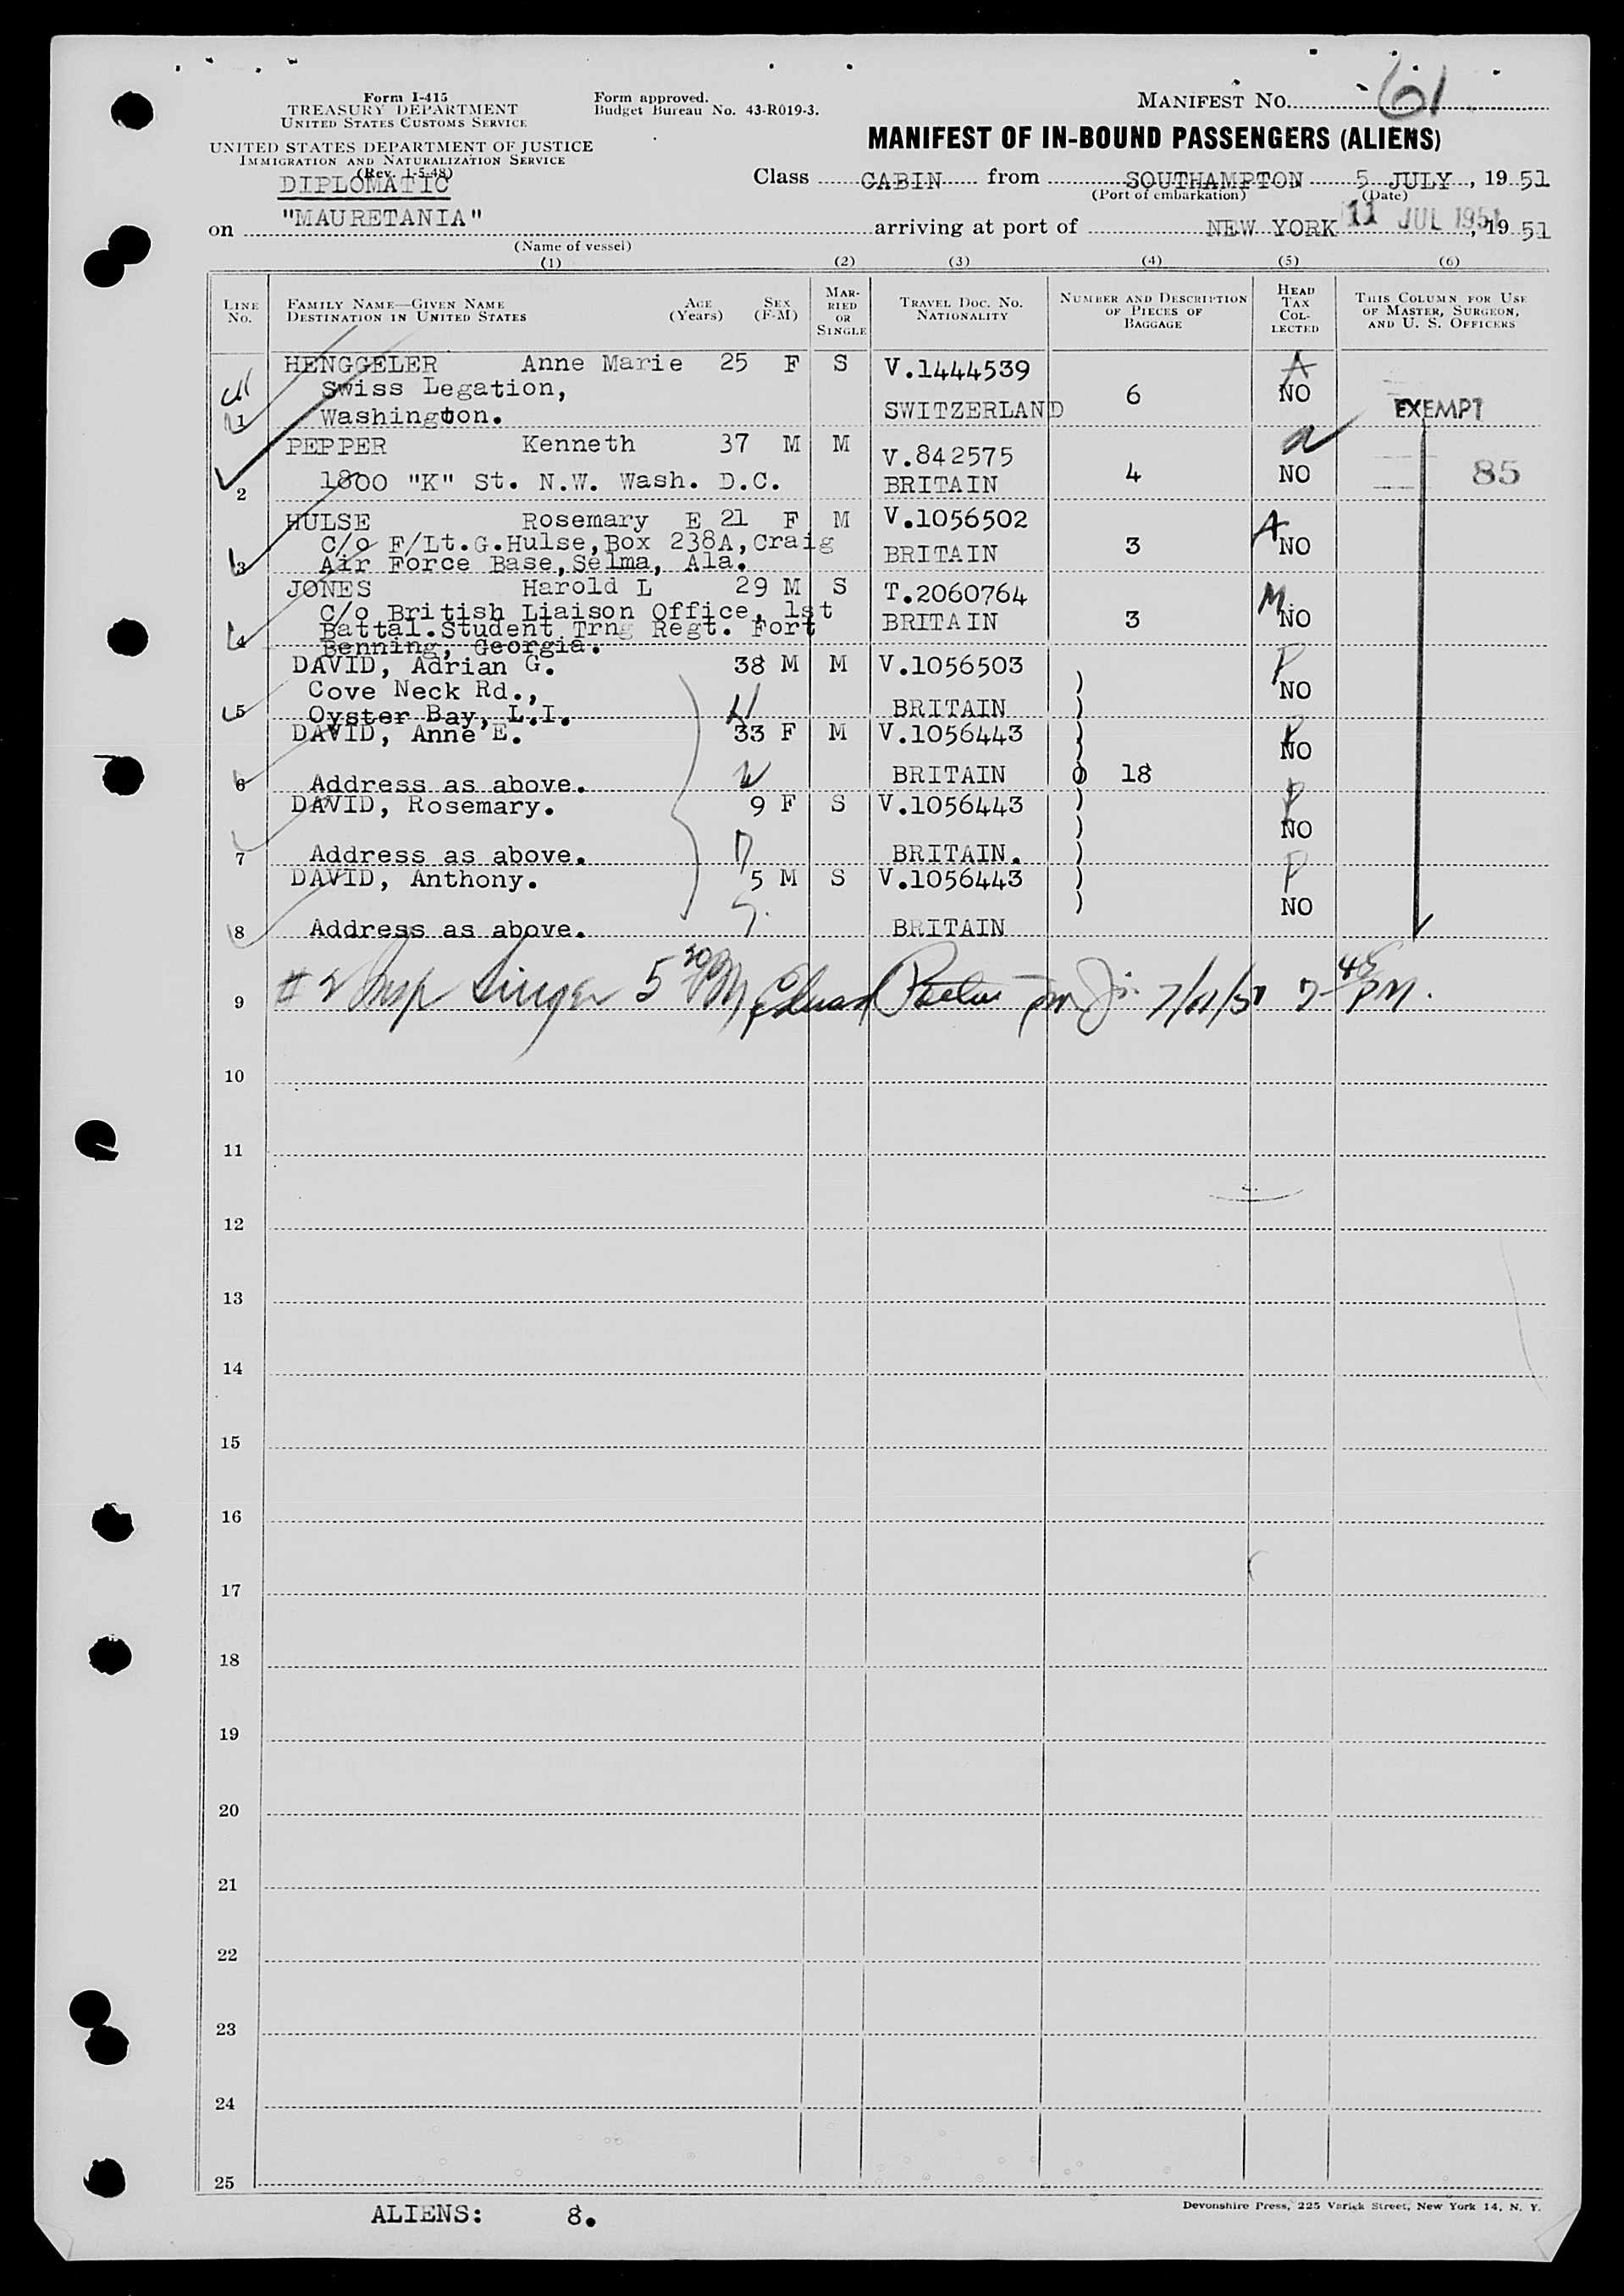 Form I-415
TREASURY DEPARTMENT
UNITED STATES CUSTOMS SERVICE
UNITED STATES DEPARTMENT OF JUSTICE
IMMIGRATION AND NATURALIZATION SERVICE
(Rev. 1-5-48)
Form approved.
Budget Bureau No. 43-R019-3.
MANIFEST NO. 61
MANIFEST OF IN-BOUND PASSENGERS (ALIENS)
DIPLOMATIC
Class CABIN from SOUTHAMPTON 5 JULY, 19 51
(Port of embarkation) (Date)
on "MAURETANIA" arriving at port of NEW YORK 11 JUL 1951, 19 51
(Name of vessel)
(1) (2) (3) (4) (5) (6)
LINE NO. FAMILY NAME—GIVEN NAME DESTINATION IN UNITED STATES AGE (Years) SEX (F-M) MARRIED OR SINGLE TRAVEL DOC. NO. NATIONALITY NUMBER AND DESCRIPTION OF PIECES OF BAGGAGE HEAD TAX COLLECTED THIS COLUMN FOR USE OF MASTER, SURGEON, AND U. S. OFFICERS
HENGGELER Anne Marie 25 F S V.1444539 A
Swiss Legation, 6 NO
1 Washington. SWITZERLAND EXEMPT
PEPPER Kenneth 37 M M V.842575 a
2 1800 "K" St. N.W. Wash. D.C. BRITAIN 4 NO 85
HULSE Rosemary E 21 F M V.1056502 A
C/o F/Lt.G.Hulse,Box 238A,Craig BRITAIN 3 NO
3 Air Force Base,Selma, Ala.
JONES Harold L 29 M S T.2060764 M
C/o British Liaison Office, 1st BRITAIN 3 NO
Battal.Student Trng Regt. Fort
4 Benning, Georgia.
DAVID, Adrian G. 38 M M V.1056503 P
Cove Neck Rd., ) NO
5 Oyster Bay, L.I. BRITAIN )
DAVID, Anne E. 33 F M V.1056443 ) P NO
6 Address as above. BRITAIN ) 18
DAVID, Rosemary. 9 F S V.1056443 ) P NO
7 Address as above. BRITAIN. )
DAVID, Anthony. 5 M S V.1056443 ) P
8 Address as above. BRITAIN ) NO
9 #2 Insp Singer 5 20 PM 7/11/51 7 45 PM.
10
11
12
13
14
15
16
17
18
19
20
21
22
23
24
25
ALIENS: 8.
Devonshire Press, 225 Varick Street, New York 14, N. Y.